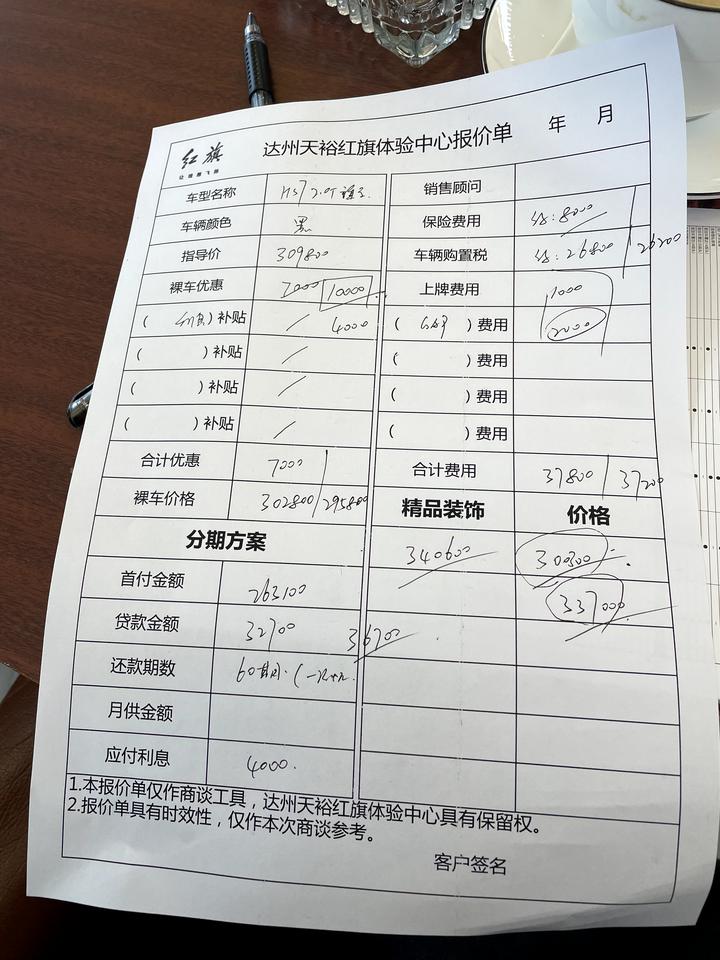 红旗
让理想飞扬
达州天裕红旗体验中心报价单 年 月
车型名称 HS7 2.0T
销售顾问
车辆颜色 黑
保险费用 8000
指导价 309800
车辆购置税 26800 26200
裸车优惠 7000 10000
上牌费用 1000
( ) 补贴 / 4000
( ) 费用 2000
( ) 补贴 /
( ) 费用
( ) 补贴 /
( ) 费用
( ) 补贴 /
( ) 费用
合计优惠 7000
合计费用 37800 / 37200
裸车价格 302800/295800
精品装饰 价格
分期方案
340600 30300
首付金额 263100
337000
贷款金额 32700 36700
还款期数 60期
月供金额
应付利息 4000.
1.本报价单仅作商谈工具，达州天裕红旗体验中心具有保留权。
2.报价单具有时效性，仅作本次商谈参考。
客户签名